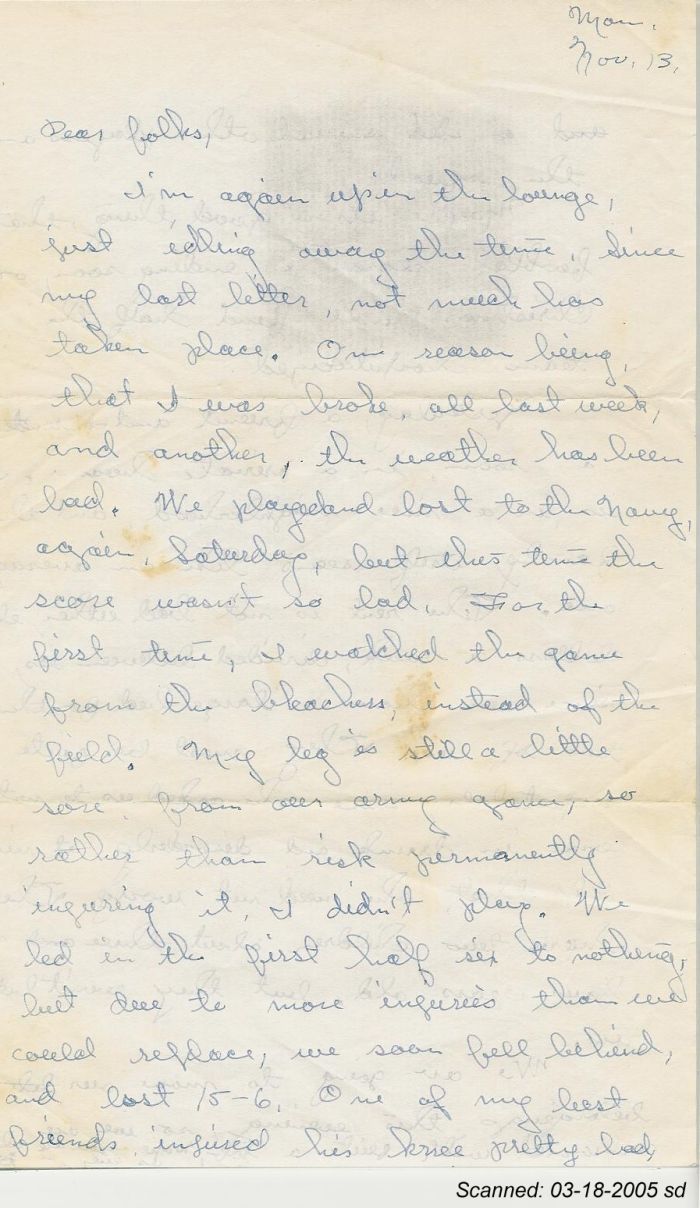 Mon.
Nov. 13,
Dear folks,
I'm again up in the lounge,
just idling away the time. Since
my last letter, not much has
taken place. One reason being,
that I was broke, all last week,
and another, the weather has been
bad. We played and lost to the Navy,
again, Saturday, but this time the
score wasn't so bad. For the
first time, I watched the game
from the bleachers, instead of the
field. My leg is still a little
sore from our army game, so
rather than risk permanently
injuring it, I didn't play. We
led in the first half six to nothing,
but due to more injuries than we
could replace, we soon fell behind,
and lost 15-6. One of my best
friends injured his knee pretty bad,
Scanned: 03-18-2005 sd